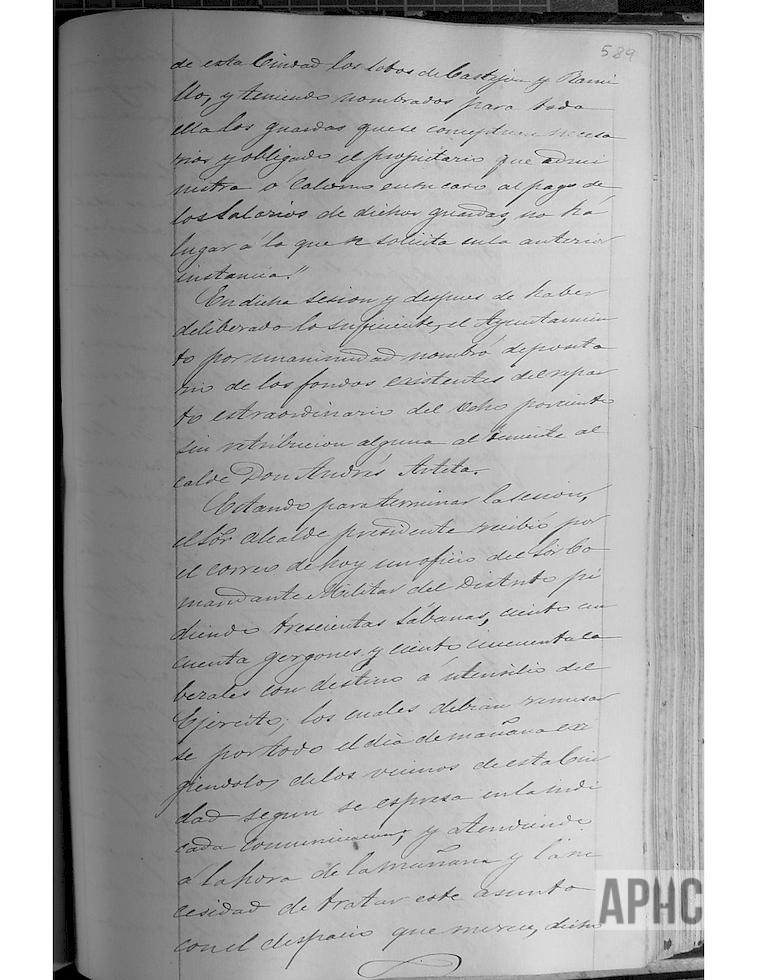 589
de esta Ciudad los sotos de Castejon y Rami
llo, y teniendo nombrados para toda
ella los guardas que se conceptuan necesa
rios y obligado el propietario que admi
nistra o Colono en su caso al pago de
los Salarios de dichos guardas, no há
lugar á lo que se solicita en la anterior
instancia."
En dicha sesion y despues de haber
deliberado lo suficiente, el Ayuntamien
to por unanimidad nombró deposita
rio de los fondos existentes del repar
to estraordinario del ocho por ciento
sin retribucion alguna al teniente al
calde Don Andrés Arteta.
Estando para terminar la sesion,
el Sor Alcalde presidente recibió por
el correo de hoy un oficio del Sor Co
mandante Militar del Distrito pi
diendo trescientas Sábanas, ciento cin
cuenta gergones y ciento cincuenta ca
bezales con destino á utensilio del
Ejército; los cuales debian remesar
se por todo el dia de mañana exi
giendolos de los vecinos de esta Ciu
dad segun se espresa en la indi
cada comunicacion, y atendiendo
á la hora de la mañana y la ne
cesidad de tratar este asunto
con el despacio que merece, dicho
APHC